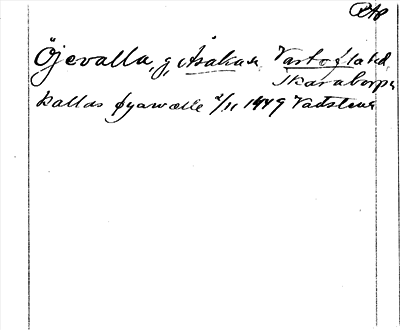 RAP
Öjevalla, g, Åsaka sn. Vartofta hd.
Skaraborgs
kallas øyawalle 2/11 1449 Vadstena